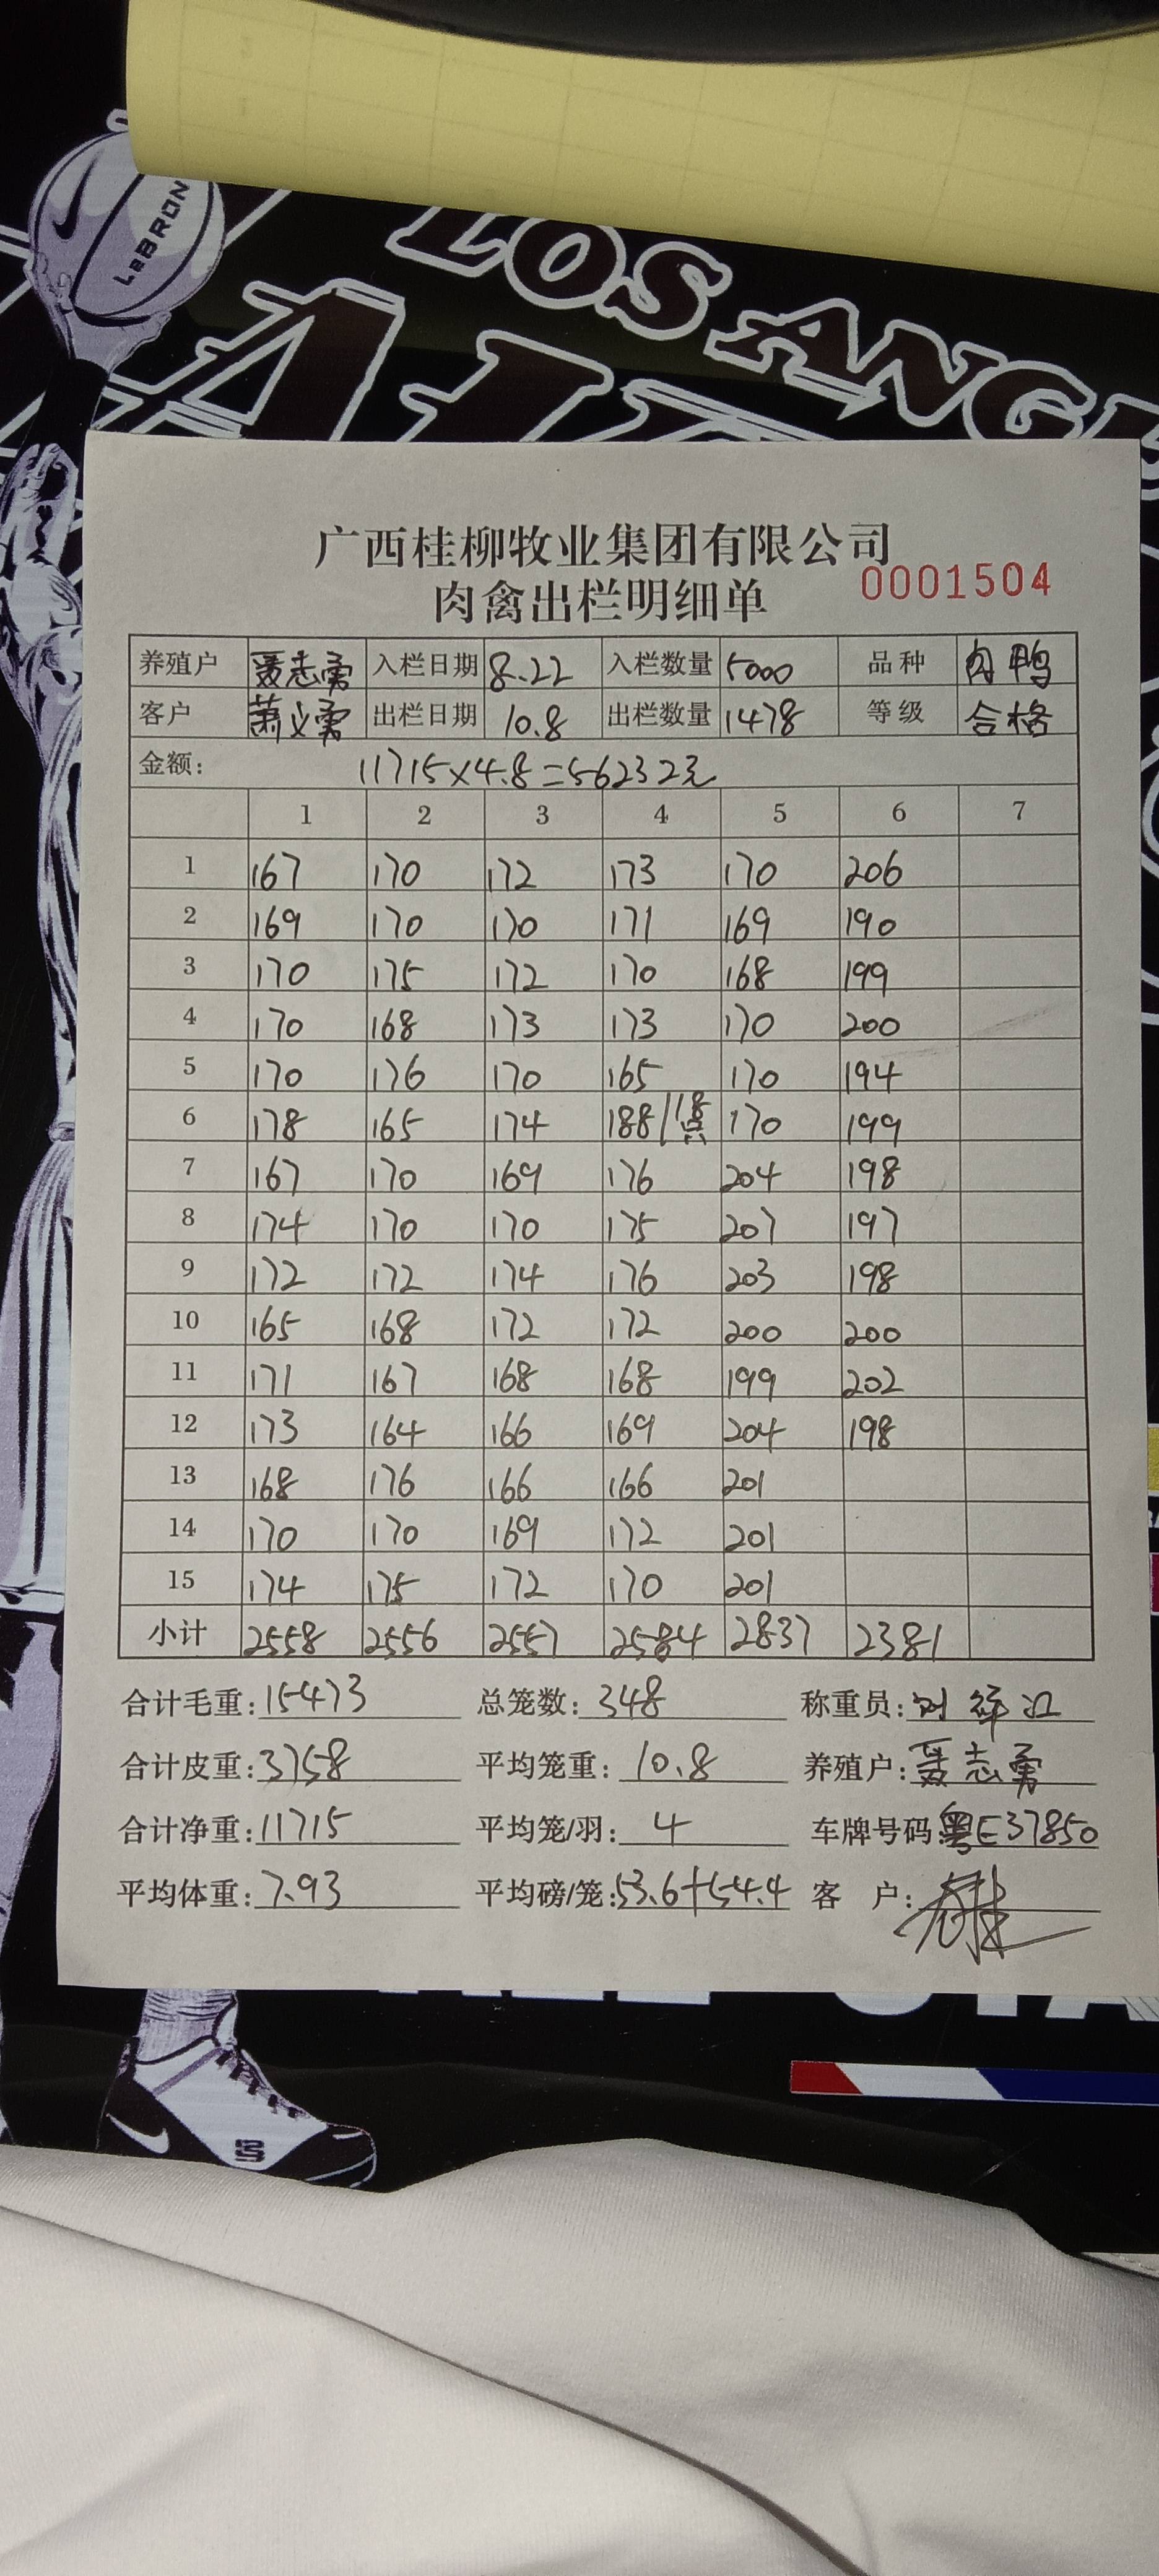 LEBRON
LOS ANGE
广西桂柳牧业集团有限公司
肉禽出栏明细单 0001504
养殖户 聂志勇 入栏日期 8.22 入栏数量 5000 品种 肉鸭
客户 萧义勇 出栏日期 10.8 出栏数量 1478 等级 合格
金额: 11715×4.8=56232元
1 2 3 4 5 6 7
1 167 170 172 173 170 206
2 169 170 170 171 169 190
3 170 175 172 170 168 199
4 170 168 173 173 170 200
5 170 176 170 165 170 194
6 178 165 174 188/18只 170 199
7 167 170 169 176 204 198
8 174 170 170 175 207 197
9 172 172 174 176 203 198
10 165 168 172 172 200 200
11 171 167 168 168 199 202
12 173 164 166 169 204 198
13 168 176 166 166 201
14 170 170 169 172 201
15 174 175 172 170 201
小计 2558 2556 2557 2584 2837 2381
合计毛重: 15473 总笼数: 348 称重员: 刘祥江
合计皮重: 3758 平均笼重: 10.8 养殖户: 聂志勇
合计净重: 11715 平均笼/羽: 4 车牌号码: 粤E37850
平均体重: 7.93 平均磅/笼: 53.6+54.4 客 户: